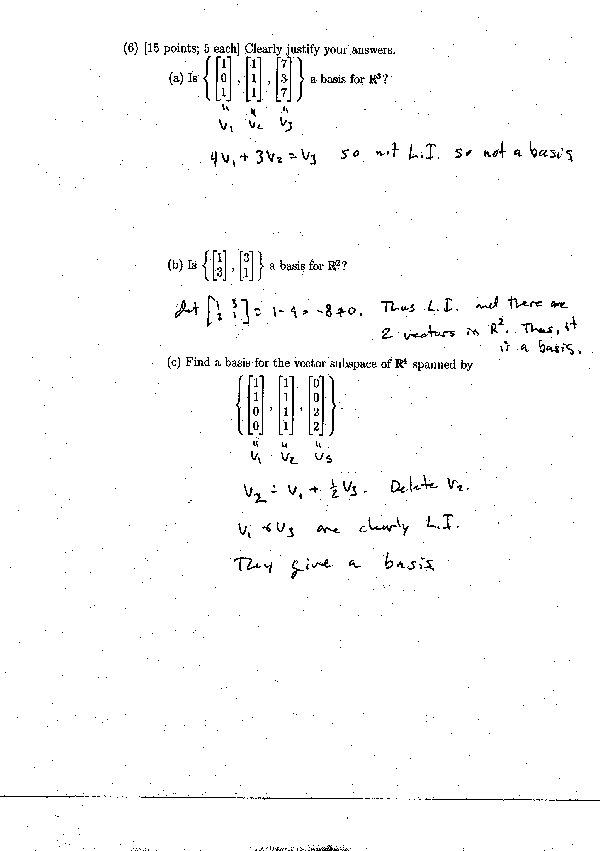 (6) [15 points; 5 each] Clearly justify your answers.
(a) Is { [1 0 1], [1 1 1], [7 3 7] } a basis for R³?
V₁ V₂ V₃
4V₁ + 3V₂ = V₃ so not L.I. so not a basis
(b) Is { [1 3], [3 1] } a basis for R²?
det [1 3 3 1] = 1 - 9 = -8 ≠ 0. Thus L.I. and there are
2 vectors in R². Thus, it
is a basis.
(c) Find a basis for the vector subspace of R⁴ spanned by
{ [1 1 0 0], [1 1 1 1], [0 0 2 2] }
V₁ V₂ V₃
V₂ = V₁ + ½V₃. Delete V₂.
V₁ & V₃ are clearly L.I.
They give a basis